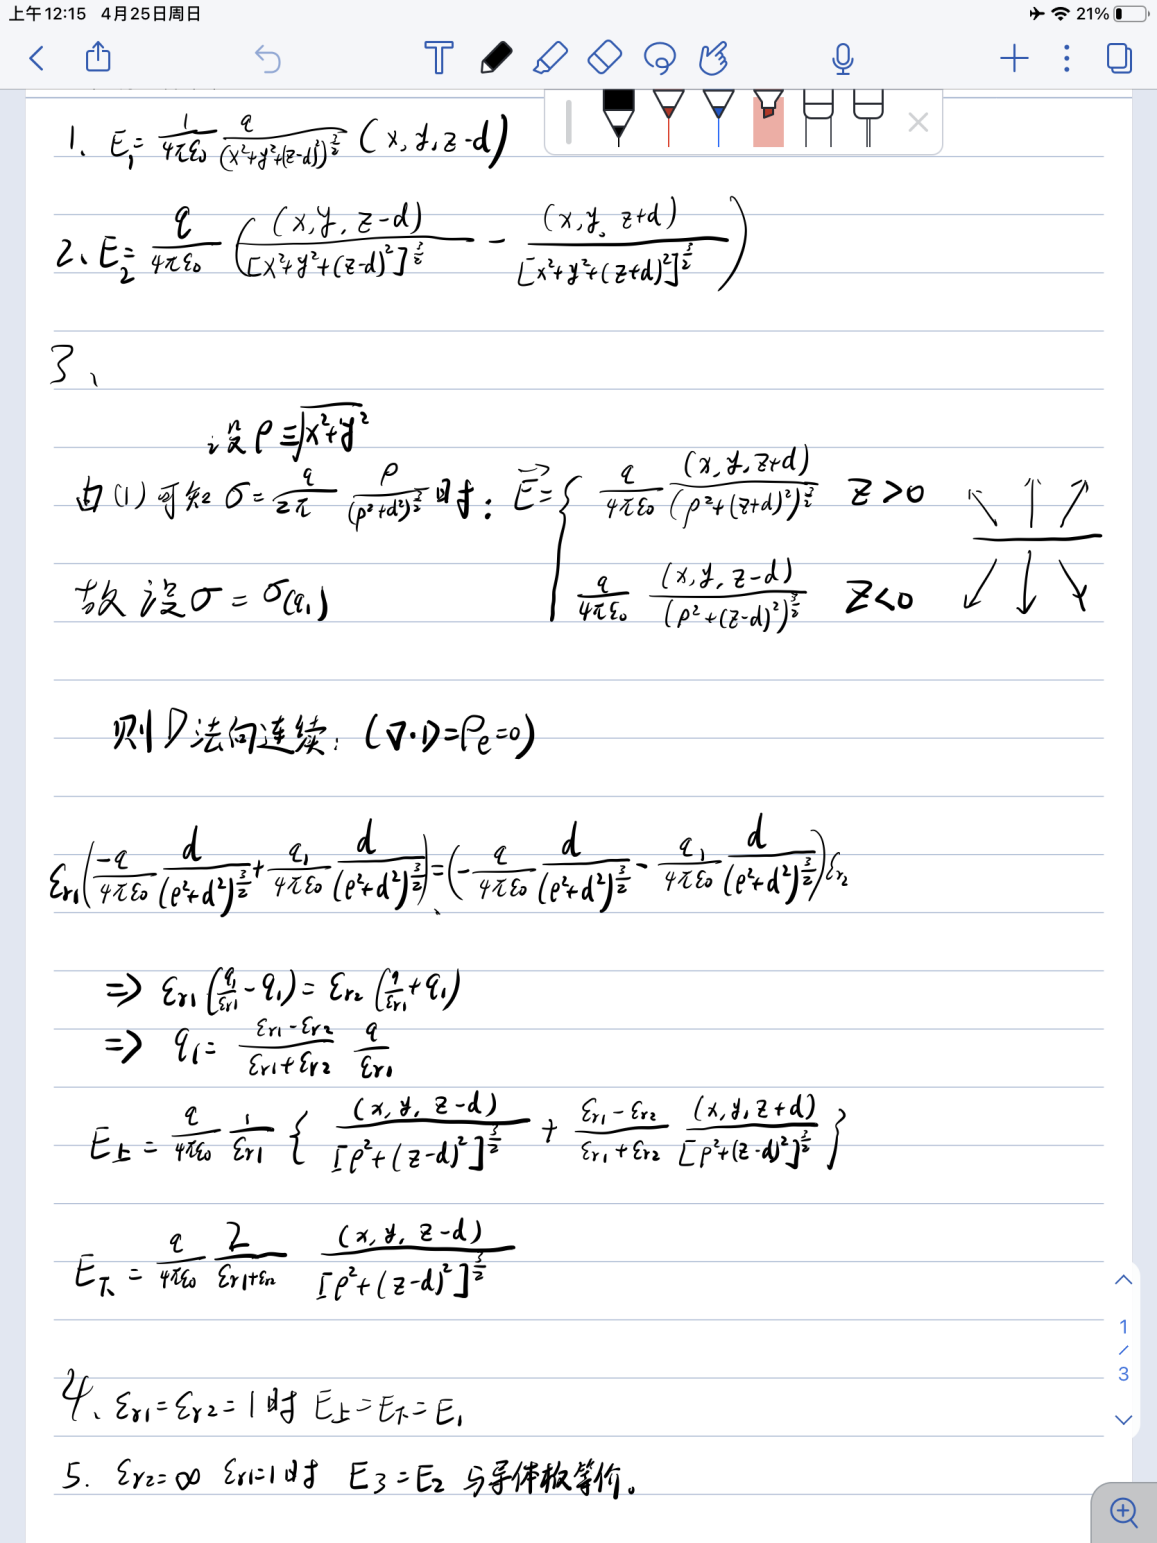 上午12:15 4月25日周日
21%
T
1、E₁= 1/4πε₀ q/(x²+y²+(z-d)²)^{3/2} (x,y,z-d)
2、E₂= q/4πε₀ ( (x,y,z-d)/[x²+y²+(z-d)²]^{3/2} - (x,y,z+d)/[x²+y²+(z+d)²]^{3/2} )
3、
设 ρ=√x²+y²
由(1)可知 σ= q/2π ρ/(ρ²+d²)^{3/2} 时: E⃗= { q/4πε₀ (x,y,z+d)/(ρ²+(z+d)²)^{3/2} z>0
故设σ=σ(q₁) q/4πε₀ (x,y,z-d)/(ρ²+(z-d)²)^{3/2} z<0
则D法向连续: (∇·D=ρe=0)
εr1(-q/4πε₀ d/(ρ²+d²)^{3/2} + q₁/4πε₀ d/(ρ²+d²)^{3/2}) = (-q/4πε₀ d/(ρ²+d²)^{3/2} - q₁/4πε₀ d/(ρ²+d²)^{3/2})εr2
=> εr1(q/εr1 - q₁) = εr2(q/εr1 + q₁)
=> q₁= εr1-εr2/εr1+εr2 q/εr1
E上 = q/4πε₀ 1/εr1 { (x,y,z-d)/[ρ²+(z-d)²]^{3/2} + εr1-εr2/εr1+εr2 (x,y,z+d)/[ρ²+(z-d)²]^{3/2} }
E下 = q/4πε₀ 2/εr1+εr2 (x,y,z-d)/[ρ²+(z-d)²]^{3/2}
4、εr1=εr2=1时 E上=E下=E₁
5. εr2=∞ εr1=1时 E₃=E₂ 与导体板等价。
1
/
3